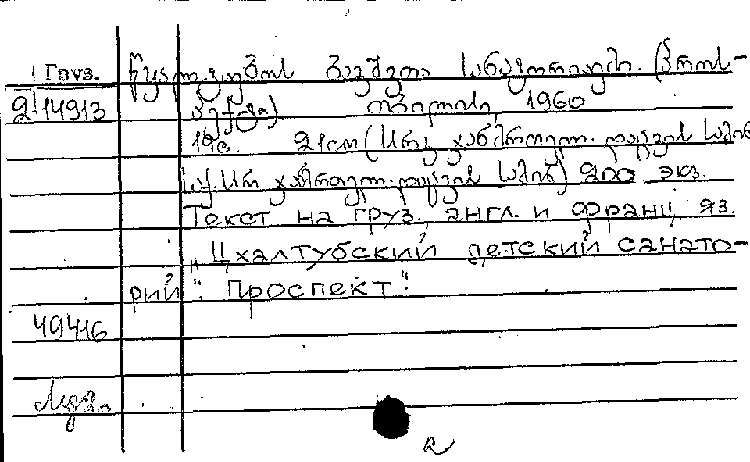 Груз. წყალტუბოს ბავშვთა სანატორიუმი. (პროს-
2-14913 პექტი) თბილისი, 1960
19с. 21см (სსრკ ჯანმრთელ. დაცვის სამინ.
საქ. სსრ ჯანმრთელ. დაცვის სამინ.) 200 экз.
Текст на груз., англ. и франц. яз.
„Цхалтубский детский санато-
рий". Проспект".
49416